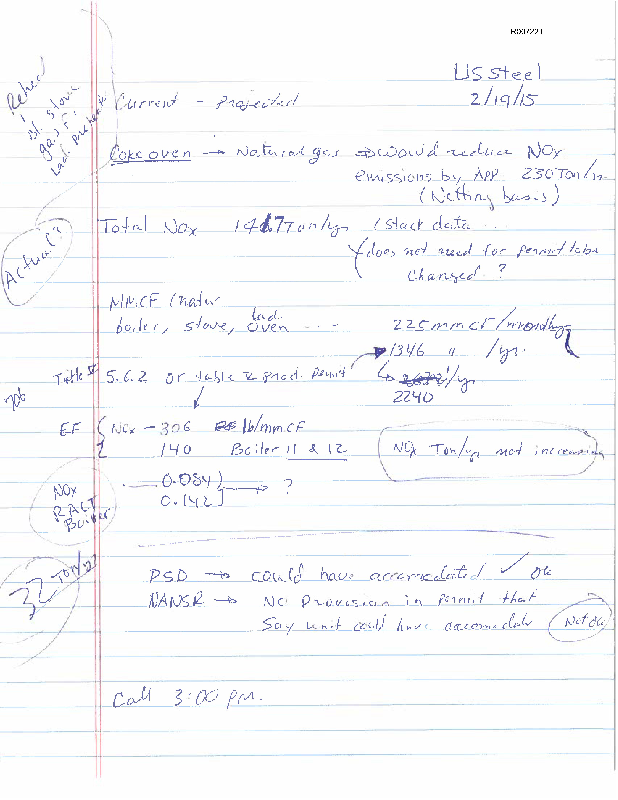 R007221
US Steel
2/19/15
Current - Projected
Coke oven → Natural gas ⇒ would reduce NOx
emissions by App 230 Ton/
(Netting basis)
Total NOx 1417 Ton/yr / stack data ...
does not need for permit to be
changed ?
Actual ?
MMCF (natur
boiler, stove, Lad. oven ---- 225 mmcf / monthly
1346 " / yr.
Title V 5.6.2 or table prod. permit
/yr
2240
EF { NOx - 306 lb/mmCF
140 Boiler 11 & 12
NOx Ton/yr not increasing
NOx
RACT
Boiler
0.084
0.142 → ?
32 Ton/yr
PSD → could have accomedated ✓ Ok
NANSR → No Provision in permit that
Say unit could have accomedate Not Ok
Call 3:00 pm.